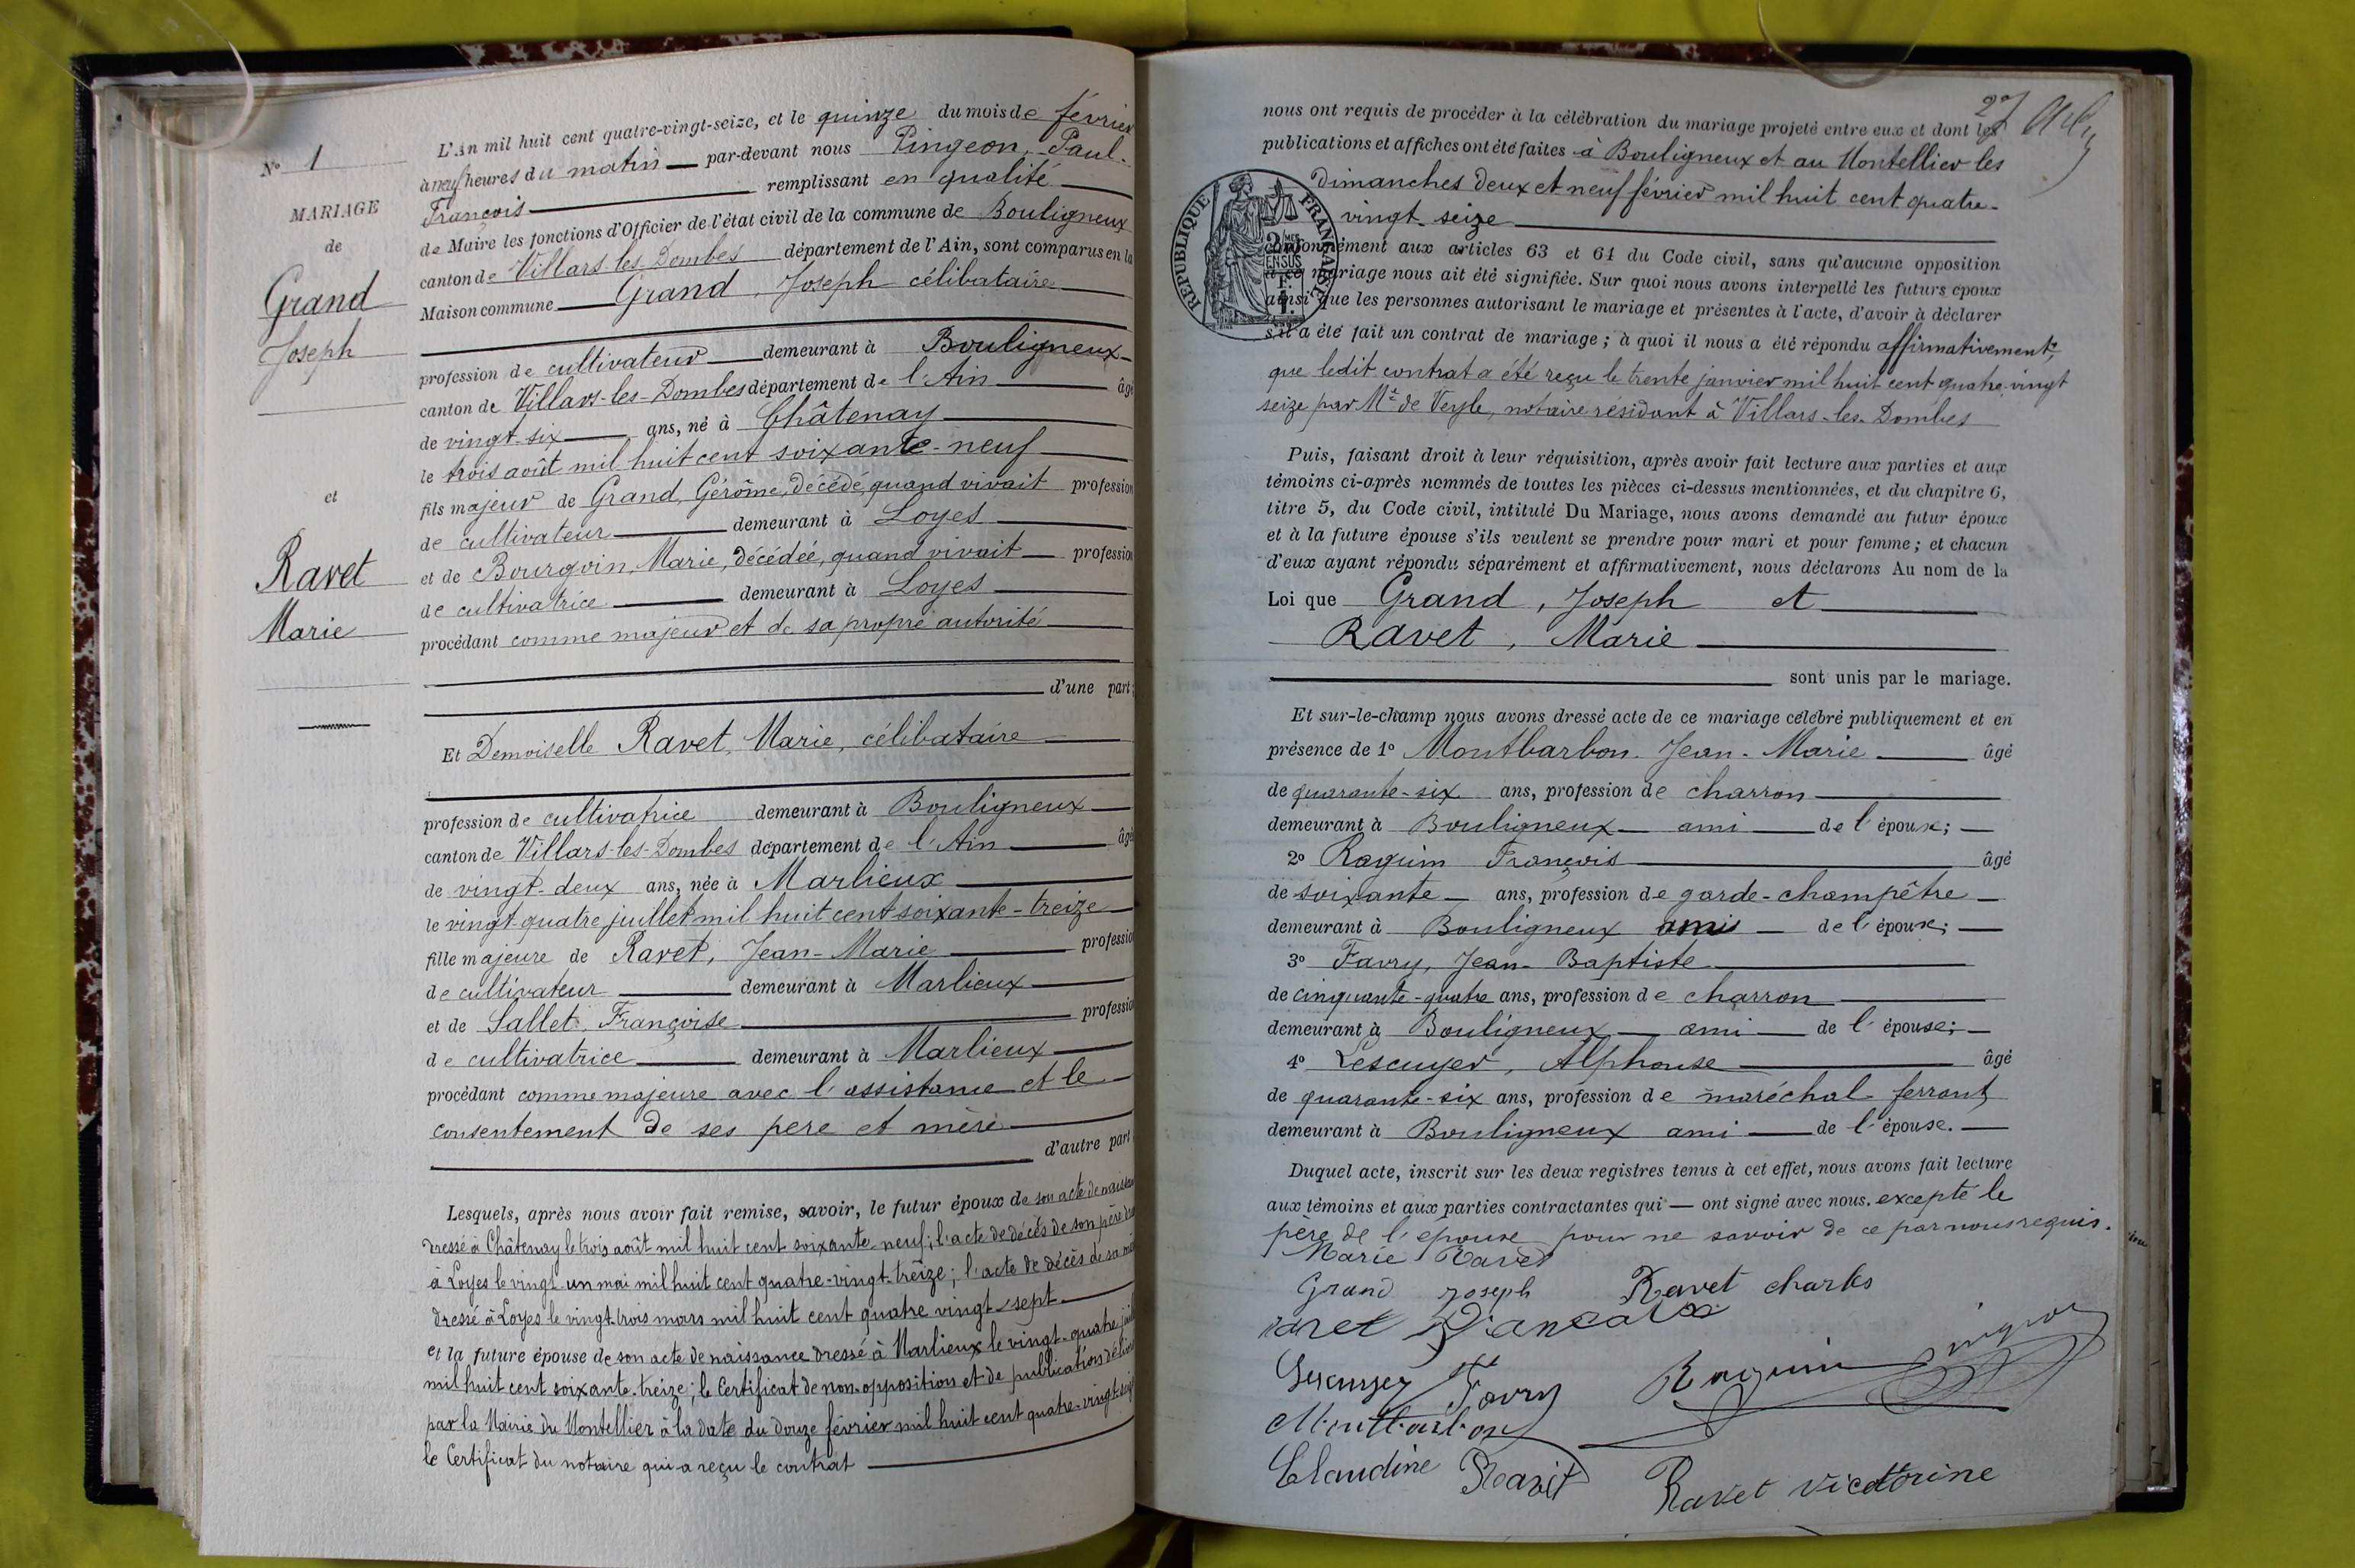 N° 1
MARIAGE
de
Grand
Joseph
et
Ravet
Marie
L'An mil huit cent quatre-vingt-seize, et le quinze du mois de février
à neuf heures du matin par-devant nous Pingeon, Paul-
François remplissant en qualité
de Maire les fonctions d'Officier de l'état civil de la commune de Bouligneux
canton de Villars-les-Dombes département de l'Ain, sont comparus en la
Maison commune Grand, Joseph célibataire
profession de cultivateur demeurant à Bouligneux
canton de Villars-les-Dombes département de l'Ain âgé
de vingt-six ans, né à Châtenay
le trois août mil huit cent soixante-neuf
fils majeur de Grand, Gérôme, décédé, quand vivait profession
de cultivateur demeurant à Loyes
et de Bourgoin, Marie, décédée, quand vivait profession
de cultivatrice demeurant à Loyes
procédant comme majeur et de sa propre autorité
d'une part;
Et Demoiselle Ravet, Marie, célibataire
profession de cultivatrice demeurant à Bouligneux
canton de Villars-les-Dombes département de l'Ain âgé
de vingt-deux ans, née à Marlieux
le vingt-quatre juillet mil huit cent soixante-treize
fille majeure de Ravet, Jean-Marie profession
de cultivateur demeurant à Marlieux
et de Sallet, Françoise profession
de cultivatrice demeurant à Marlieux
procédant comme majeure avec l'assistance et le
consentement de ses pere et mère
d'autre part
Lesquels, après nous avoir fait remise, savoir, le futur époux de son acte de naissance
dressé à Châtenay le trois août mil huit cent soixante-neuf; l'acte de décès de son père
à Loyes le vingt-un mai mil huit cent quatre-vingt-treize; l'acte de décès de sa
dressé à Loyes le vingt-trois mars mil huit cent quatre vingt-sept
et la future épouse de son acte de naissance dressé à Marlieux le vingt-quatre
mil huit cent soixante-treize; le Certificat de non-opposition et de publications
par la Mairie du Montellier à la date du douze février mil huit cent quatre-vingt-
le Certificat du notaire qui a reçu le contrat
27
nous ont requis de procéder à la célébration du mariage projeté entre eux et dont les
publications et affiches ont été faites à Bouligneux et au Montellier les
dimanches deux et neuf février mil huit cent quatre-
vingt-seize
RÉPUBLIQUE FRANÇAISE
conformément aux articles 63 et 64 du Code civil, sans qu'aucune opposition
à ce mariage nous ait été signifiée. Sur quoi nous avons interpellé les futurs époux
ainsi que les personnes autorisant le mariage et présentes à l'acte, d'avoir à déclarer
s'il a été fait un contrat de mariage; à quoi il nous a été répondu affirmativement,
que ledit contrat a été reçu le trente janvier mil huit cent quatre-vingt
seize par Me de Veyle, notaire résidant à Villars-les-Dombes
Puis, faisant droit à leur réquisition, après avoir fait lecture aux parties et aux
témoins ci-après nommés de toutes les pièces ci-dessus mentionnées, et du chapitre 6,
titre 5, du Code civil, intitulé Du Mariage, nous avons demandé au futur époux
et à la future épouse s'ils veulent se prendre pour mari et pour femme; et chacun
d'eux ayant répondu séparément et affirmativement, nous déclarons Au nom de la
Loi que Grand, Joseph et
Ravet, Marie
sont unis par le mariage.
Et sur-le-champ nous avons dressé acte de ce mariage célébré publiquement et en
présence de 1° Montbarbon, Jean-Marie âgé
de quarante-six ans, profession de charron
demeurant à Bouligneux ami de l'époux;
2° Raguin François âgé
de soixante ans, profession de garde-champêtre
demeurant à Bouligneux amis de l'époux;
3° Favry, Jean-Baptiste
de cinquante-quatre ans, profession de charron
demeurant à Bouligneux ami de l'épouse;
4° Lescuyer, Alphonse âgé
de quarante-six ans, profession de maréchal-ferrant
demeurant à Bouligneux ami de l'épouse.
Duquel acte, inscrit sur les deux registres tenus à cet effet, nous avons fait lecture
aux témoins et aux parties contractantes qui ont signé avec nous. excepté le
père de l'épouse pour ne savoir de ce par nous requis.
Marie Ravet
Grand Joseph Ravet charles
Lescuyer Favry Raguin Pingeon
Montbarbon
Claudine Ravet Ravet Vicottorine